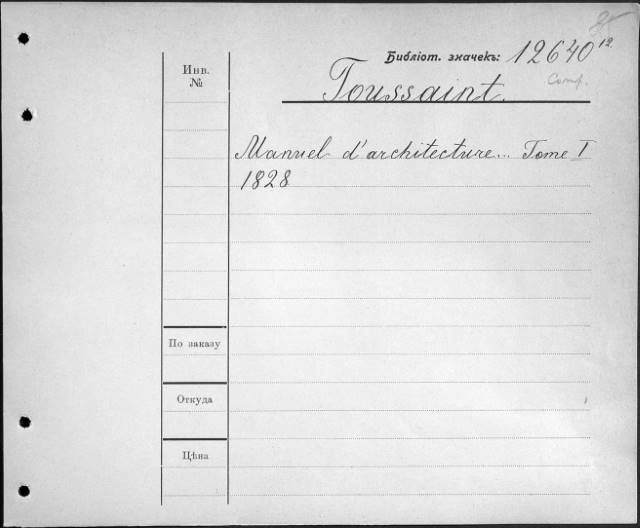 Библіот. значекъ: 12640 12
Comp.
Инв.
№
Toussaint.
Manuel d'architecture... Tome I
1828
По заказу
Откуда
Цѣна